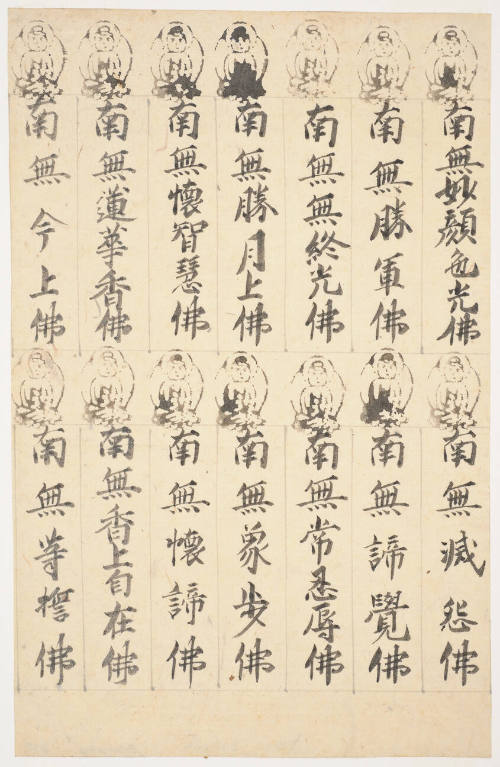 南無妙顏色光佛
南無勝軍佛
南無無終光佛
南無勝月上佛
南無懷智慧佛
南無蓮華香佛
南無今上佛
南無滅怨佛
南無諦覺佛
南無常忍辱佛
南無象步佛
南無懷諦佛
南無香上自在佛
南無等誓佛